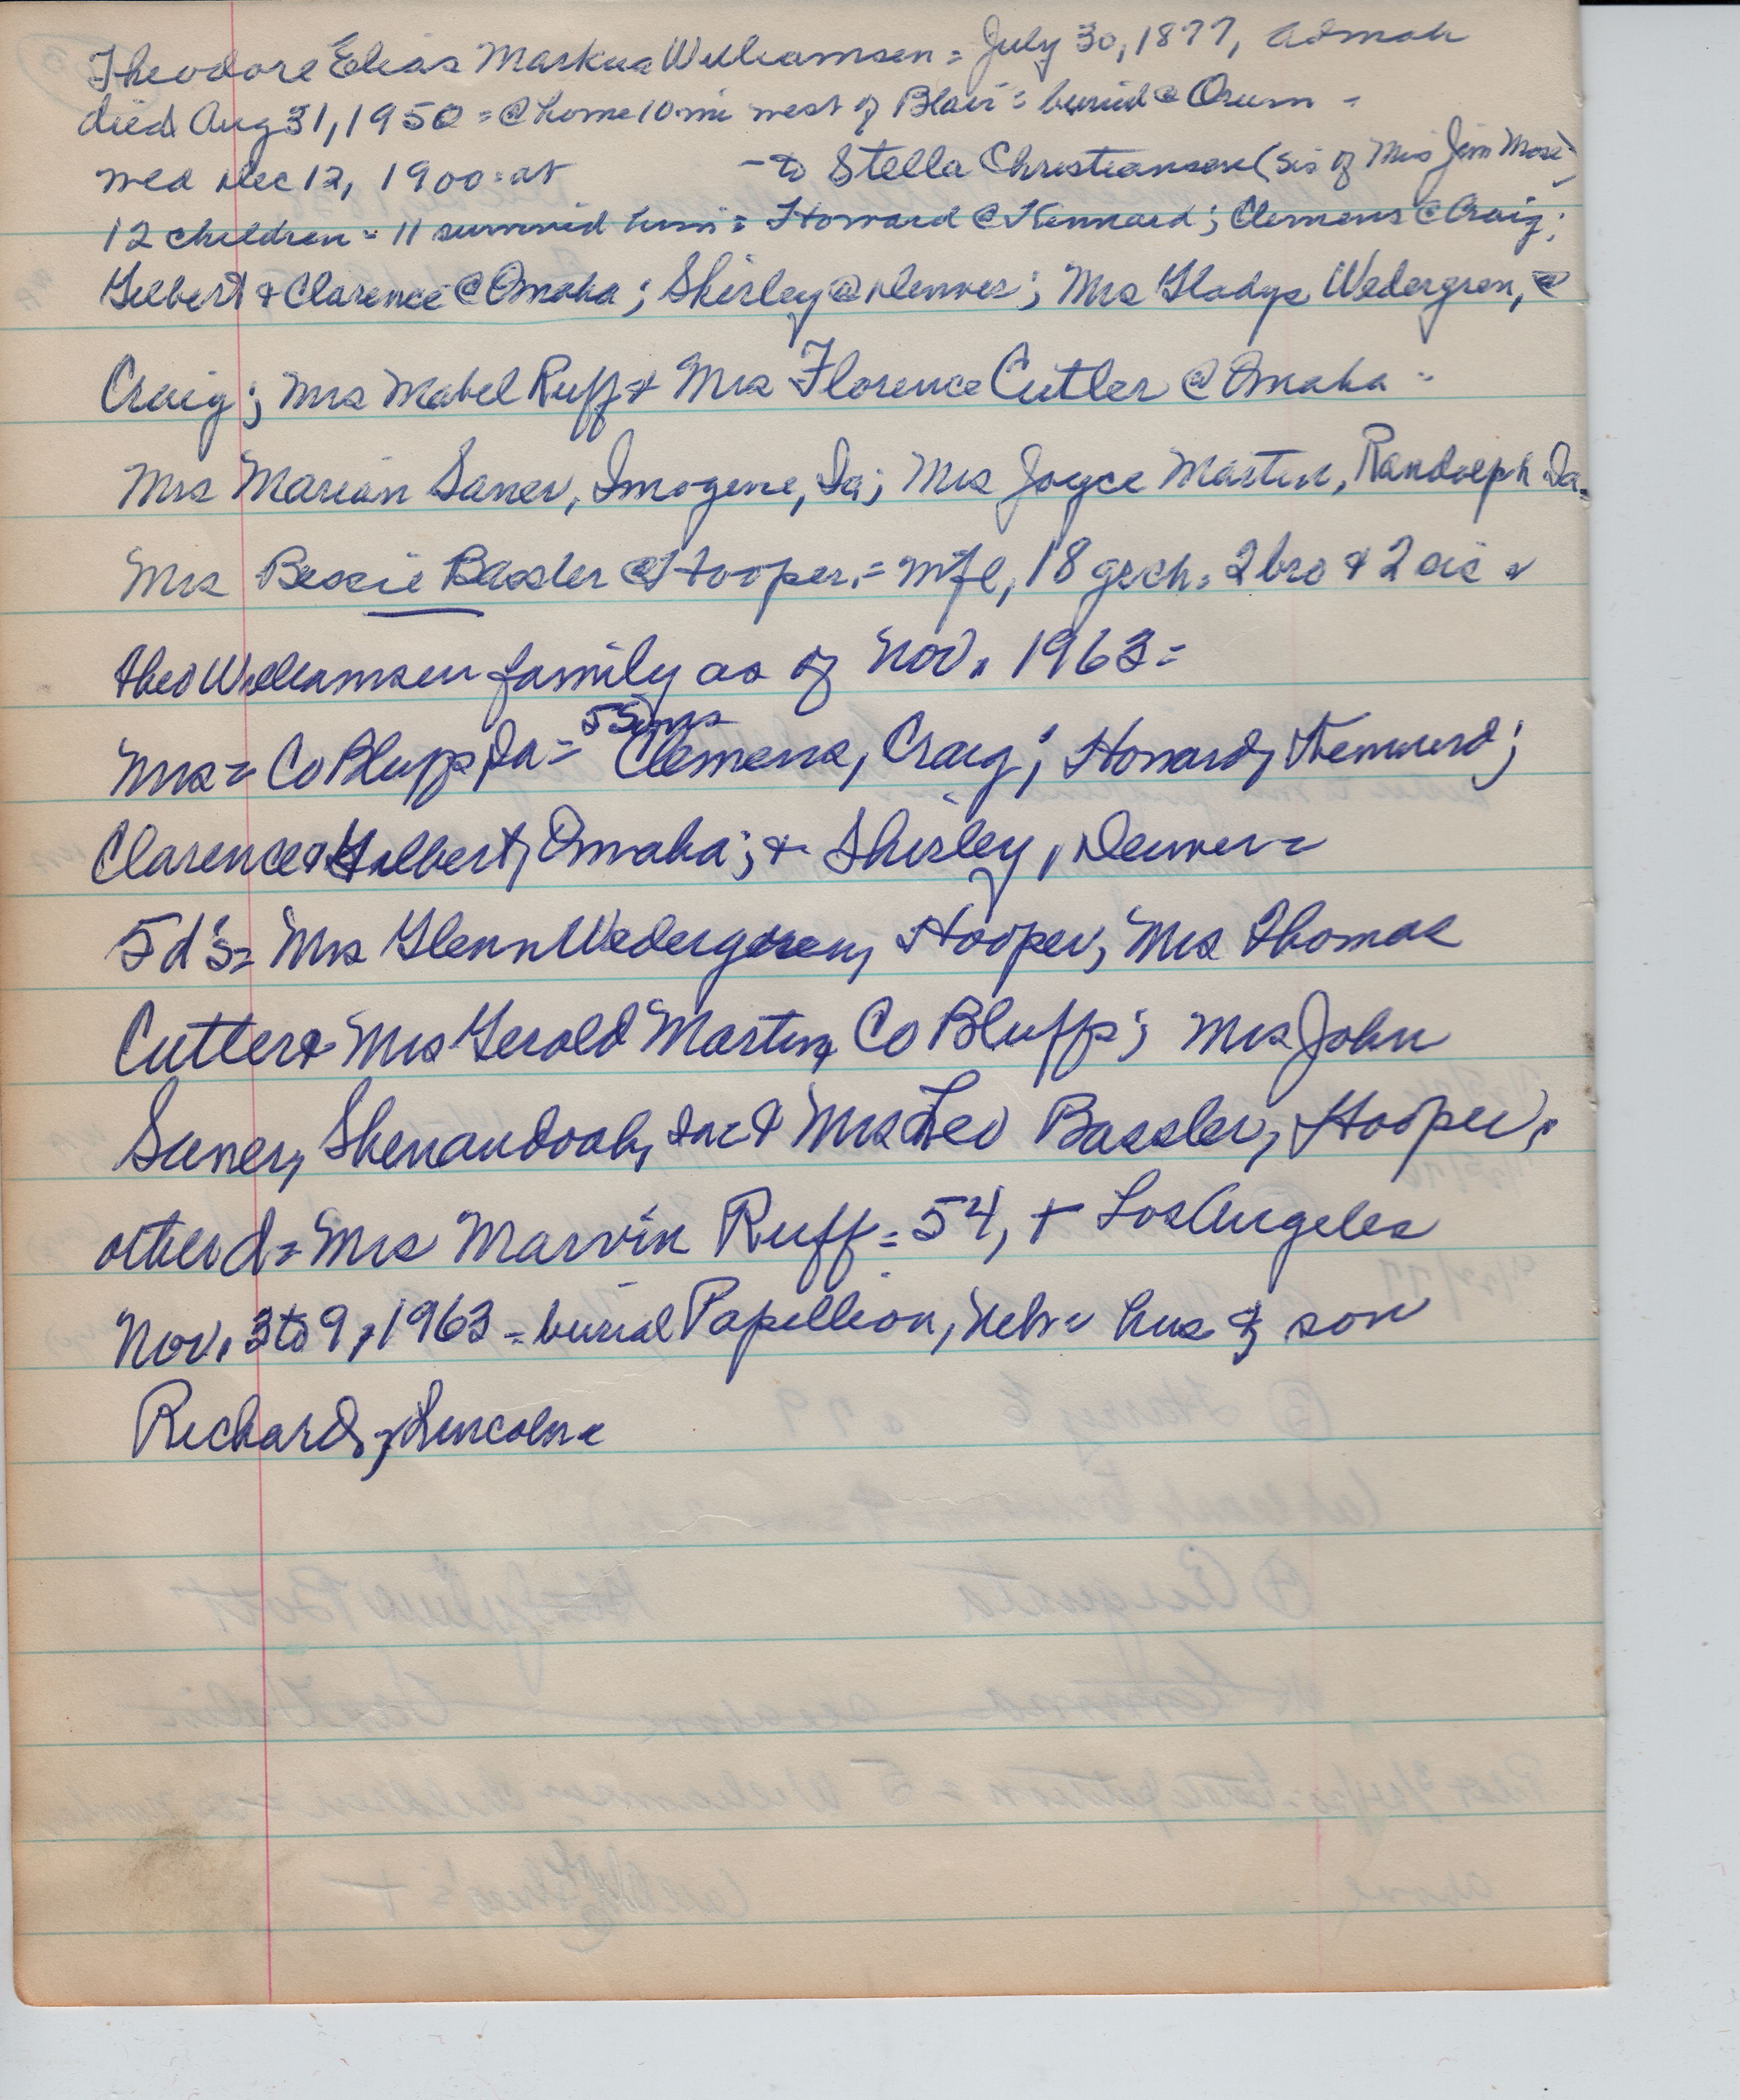 Theodore Elias Markus Williamsen = July 30, 1877, Admah
died Aug 31, 1950 = @ home 10 mi west of Blair = buried @ Orum -
wed Dec 12, 1900 = at - to Stella Christiansen (sis of Mrs Jim Mose)
12 children - 11 survived him = Howard @ Kennard; Clemens @ Craig;
Gilbert & Clarence @ Omaha; Shirley @ Denver; Mrs Gladys Wedergren, @
Craig; Mrs Mabel Ruff & Mrs Florence Cutler @ Omaha -
Mrs Marian Saner, Imogene, Ia; Mrs Joyce Martin, Randolph Ia.
Mrs Bessie Bassler @ Hooper. = wife, 18 grch. 2 bro & 2 sis -
Theo Williamsen family as of Nov. 1963 =
5 Sons
Mrs = Co Bluffs, Ia = Clemens, Craig; Howard, Kennard;
Clarence & Gilbert, Omaha; & Shirley, Denver =
5 d's = Mrs Glenn Wedergren, Hooper, Mrs Thomas
Cutler & Mrs Gerold Martin, Co Bluffs; Mrs John
Saner, Shenandoah, Ia & Mrs Leo Bassler, Hooper.
other d = Mrs Marvin Ruff = 54, + Los Angeles
Nov. 3 to 9, 1963 = burial Papillion, Nebr = hus & son
Richard, Lincoln =